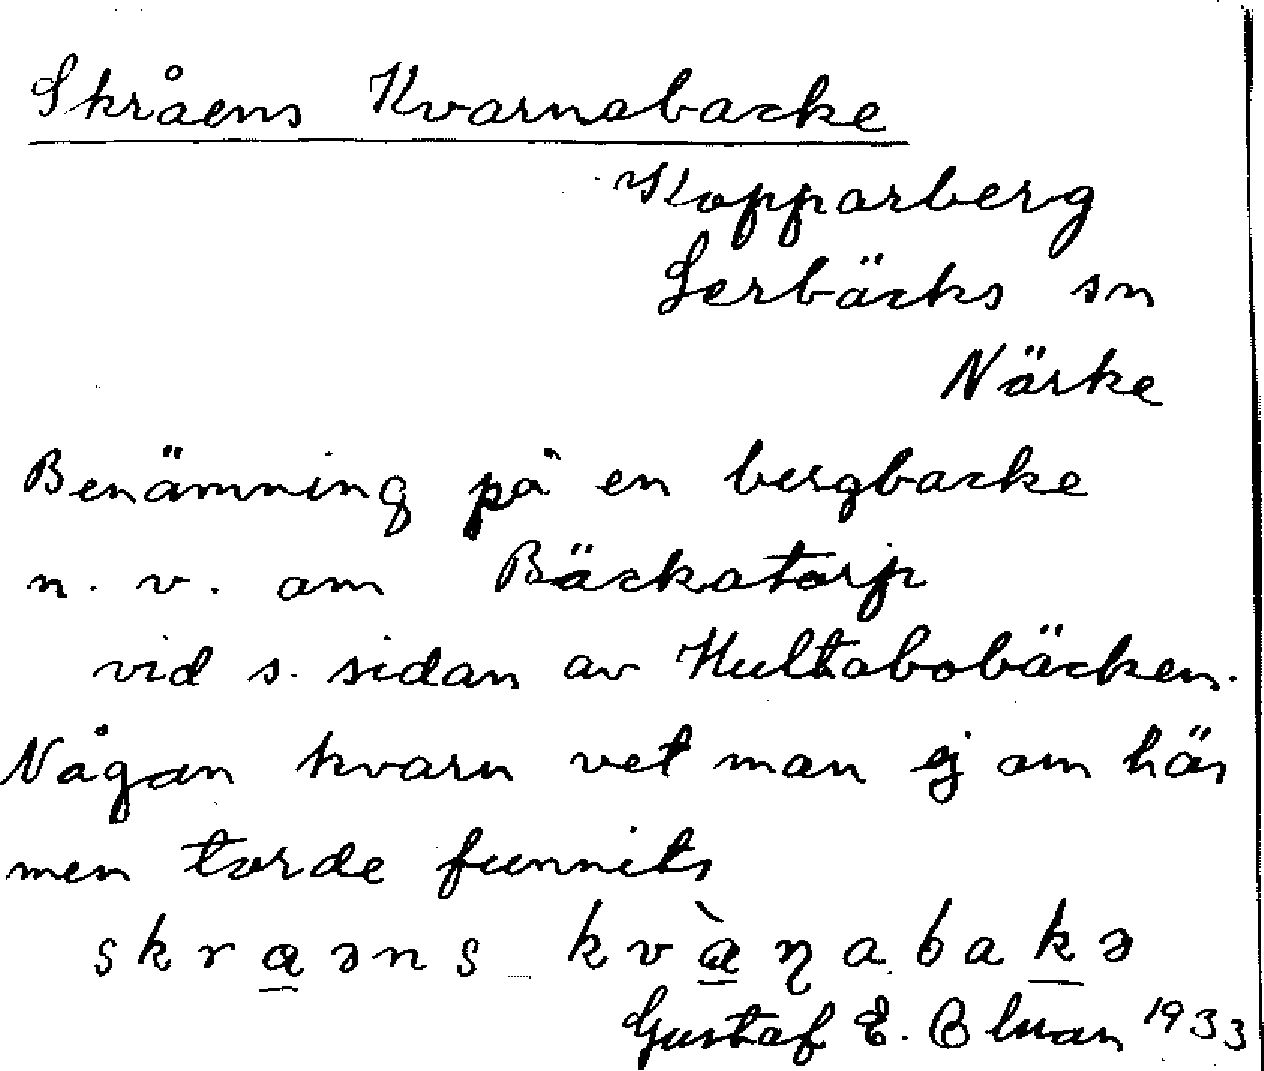 Skråens Kvarnabacke
Kopparberg
Lerbäcks sn
Närke
Benämning på en bergbacke
n. v. om Bäckatorp
vid s. sidan av Hultabobäcken.
Någon kvarn vet man ej om här
men torde funnits
skraəns kvàɳabakə
Gustaf E. Bluan 1933